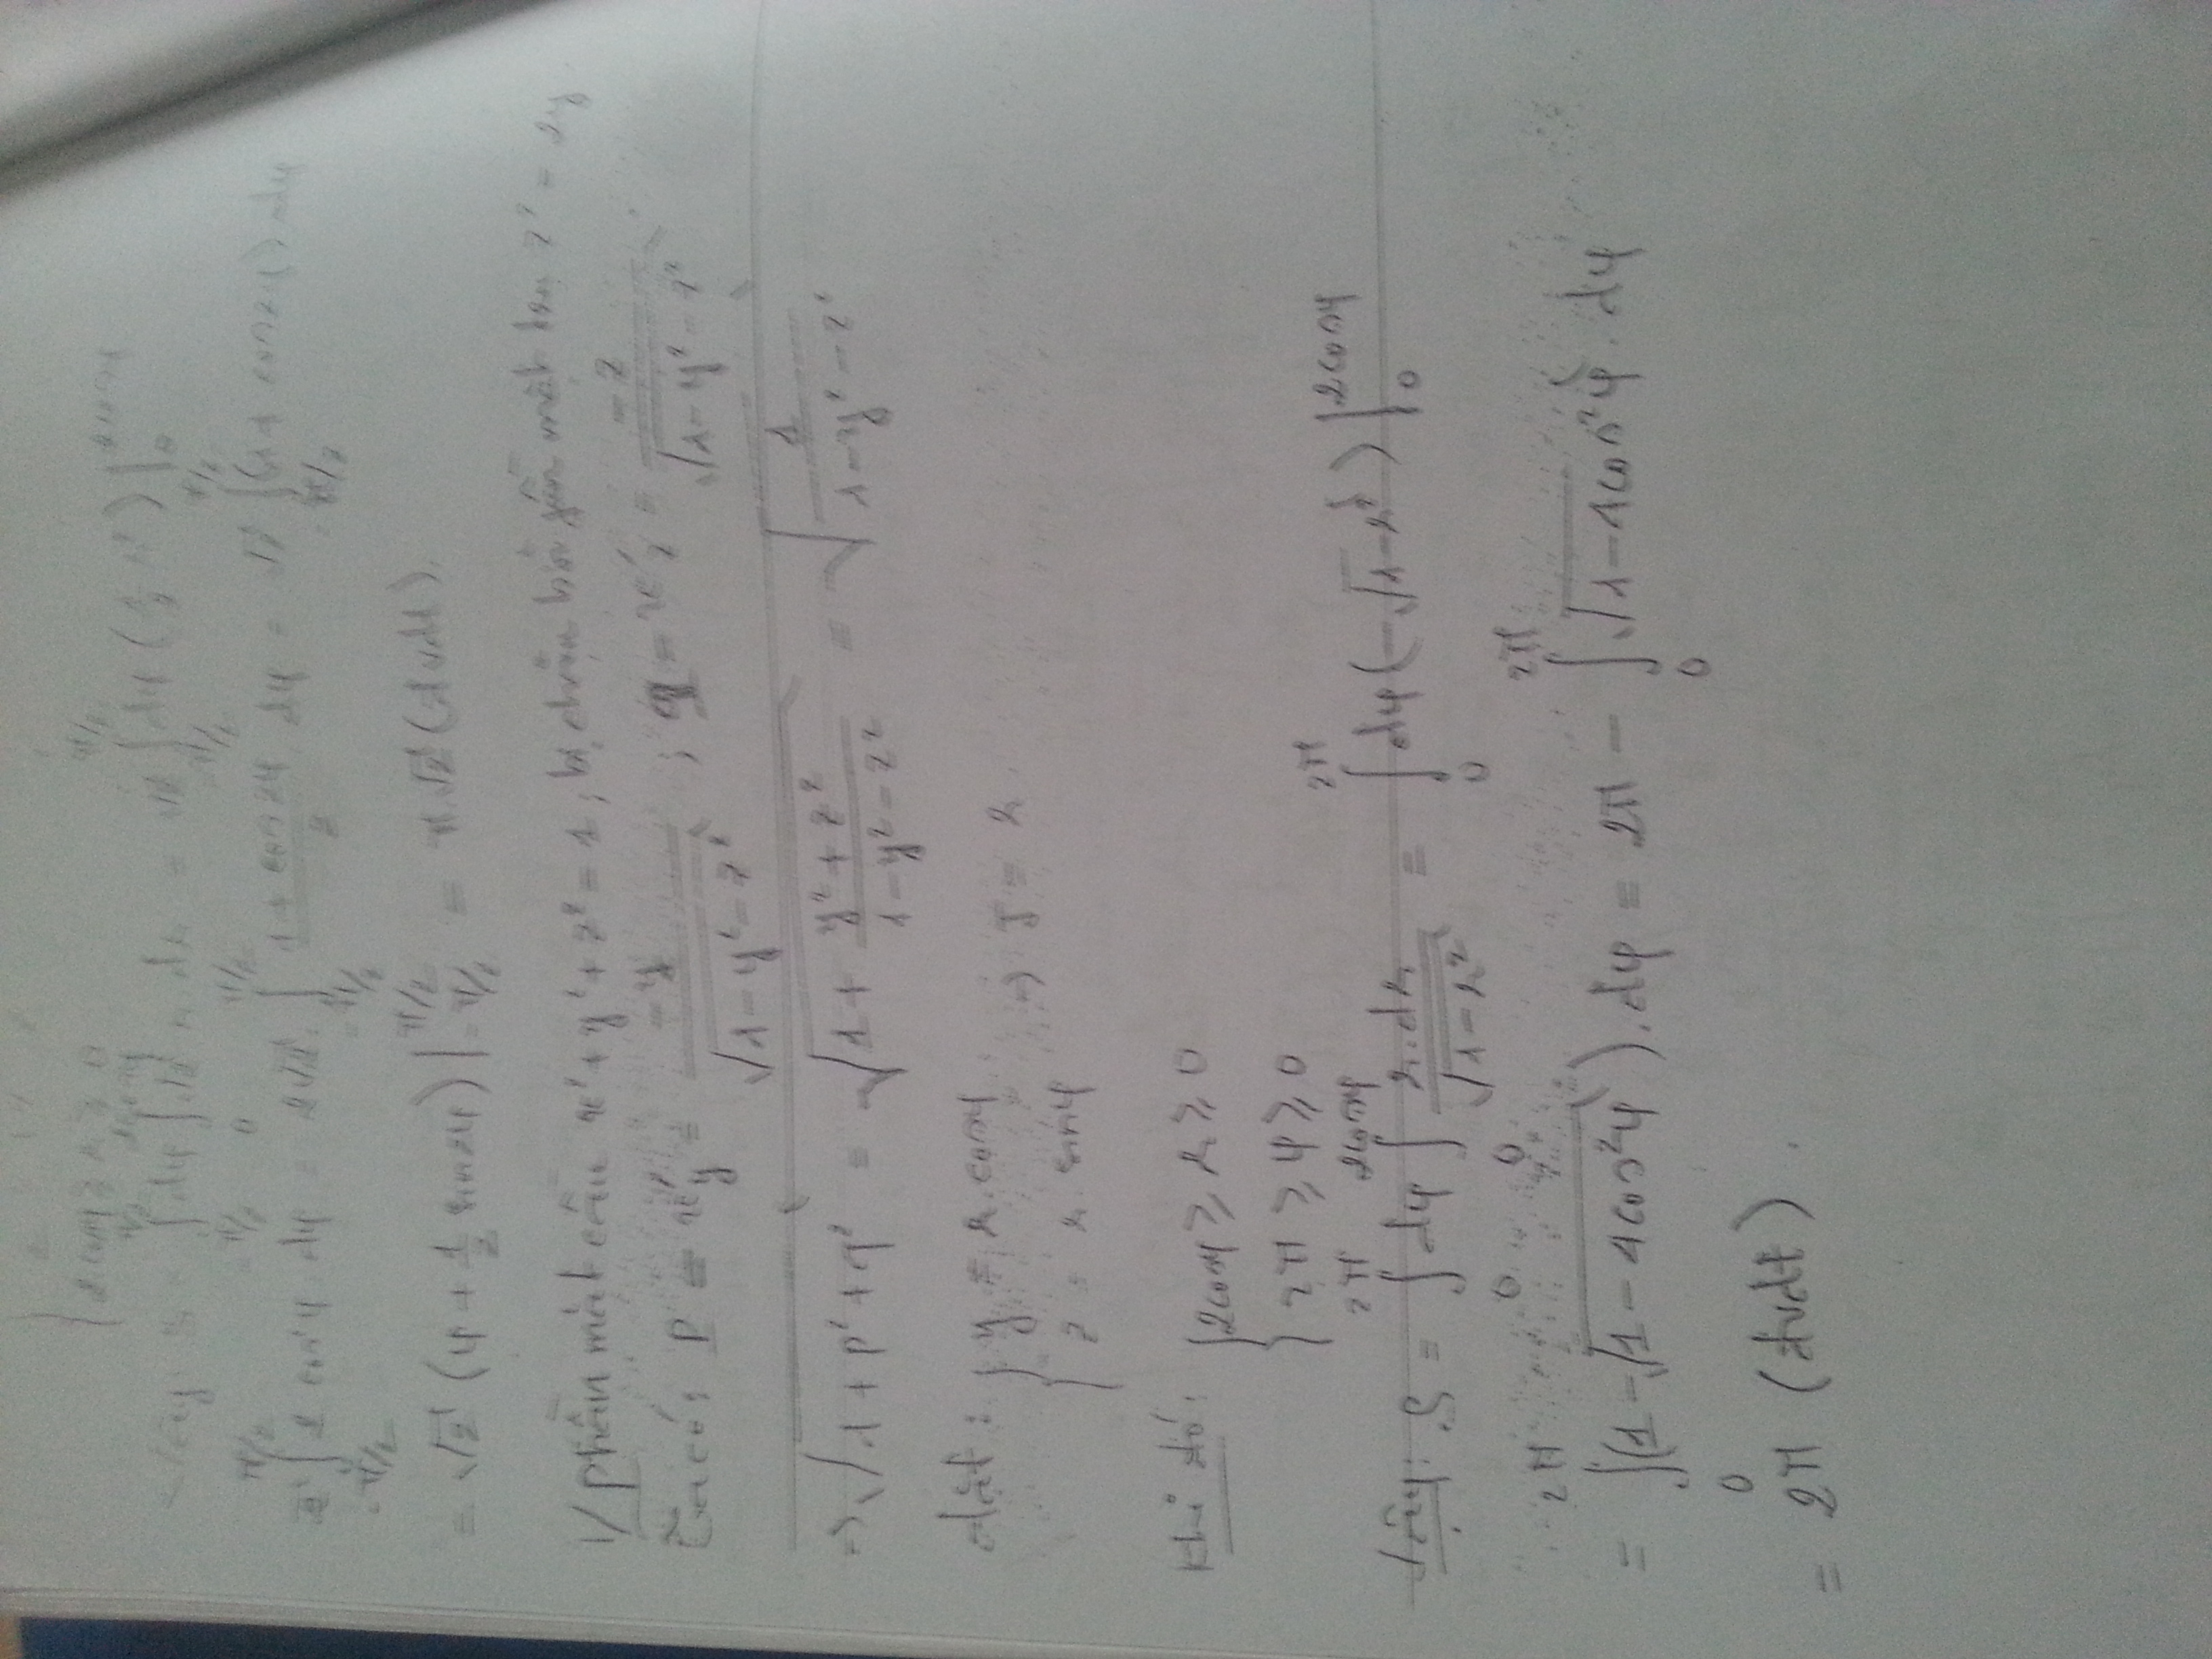 2cosφ ≥ r ≥ 0
Vậy: S = ∫_{-π/2}^{π/2} dφ ∫_0^{2cosφ} √2 r.dr = √2 ∫_{-π/2}^{π/2} dφ (1/2 r²) |_0^{2cosφ}
√2 ∫_{-π/2}^{π/2} 2 cos²φ . dφ = 2√2 . ∫_{-π/2}^{π/2} (1 + cos2φ)/2 dφ = √2 ∫_{-π/2}^{π/2} (1 + cos2φ) . dφ
= √2 (φ + 1/2 sin2φ) |_{-π/2}^{π/2} = π.√2 (đvdt).
1/ phần mặt cầu x² + y² + z² = 1; bị chắn bởi gần mặt z² = 2y
Ta có: p = x'y = -y/√(1-y²-z²) ; q = x'z = -z/√(1-y²-z²)
→ √(1+p²+q²) = √(1 + (y²+z²)/(1-y²-z²)) = √(1/(1-y²-z²))
đặt: { y = r.cosφ
z = r.sinφ → J = r
Khi đó: { 2cosφ ≥ r ≥ 0
2π ≥ φ ≥ 0
Vậy: S = ∫_0^{2π} dφ ∫_0^{2cosφ} r.dr/√(1-r²) = ∫_0^{2π} dφ (-√(1-r²)) |_0^{2cosφ}
= ∫_0^{2π} (1 - √(1 - 4cos²φ)) . dφ = 2π - ∫_0^{2π} √(1-4cos²φ) . dφ
= 2π (đvdt).